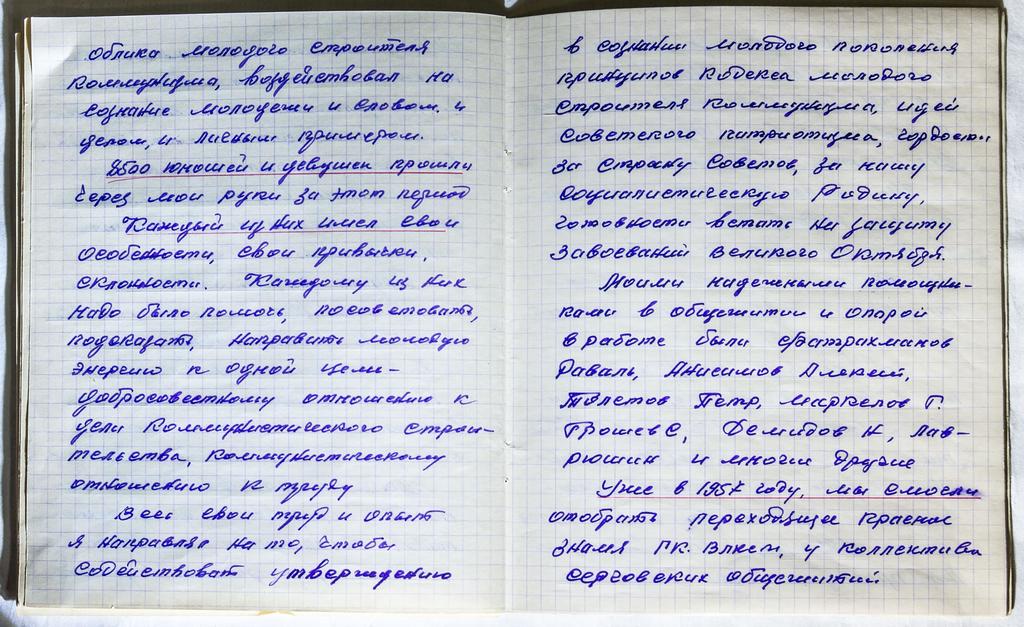 облика молодого строителя
коммунизма, воздействовал на
сознание молодежи и словом и
делом, и личным примером.
8500 юношей и девушек прошли
через мои руки за этот период
Каждый из них имел свои
особенности, свои привычки,
склонности. Каждому из них
надо было помочь, посоветовать,
подсказать, направить молодую
энергию к одной цели-
добросовестному отношению к
делу коммунистического строи-
тельства, коммунистическому
отношению к труду
Весь свой труд и опыт
я направлял на то, чтобы
содействовать утверждению
в сознании молодого поколения
принципов кодекса молодого
строителя коммунизма, идей
советского патриотизма, гордости
за страну Советов, за нашу
социалистическую Родину,
готовности встать на защиту
завоеваний Великого Октября.
Моими надежными помощни-
ками в общежитии и опорой
в работе были Фатрахманов
Раваль, Анисимов Алексей,
Петр, Маркелов Г.
Грошев С, Демидов Н, Лав-
рюшин и многие другие
Уже в 1957 году, мы смогли
отобрать переходящее красное
знамя ГК. ВЛКСМ, у коллектива
общежитий.